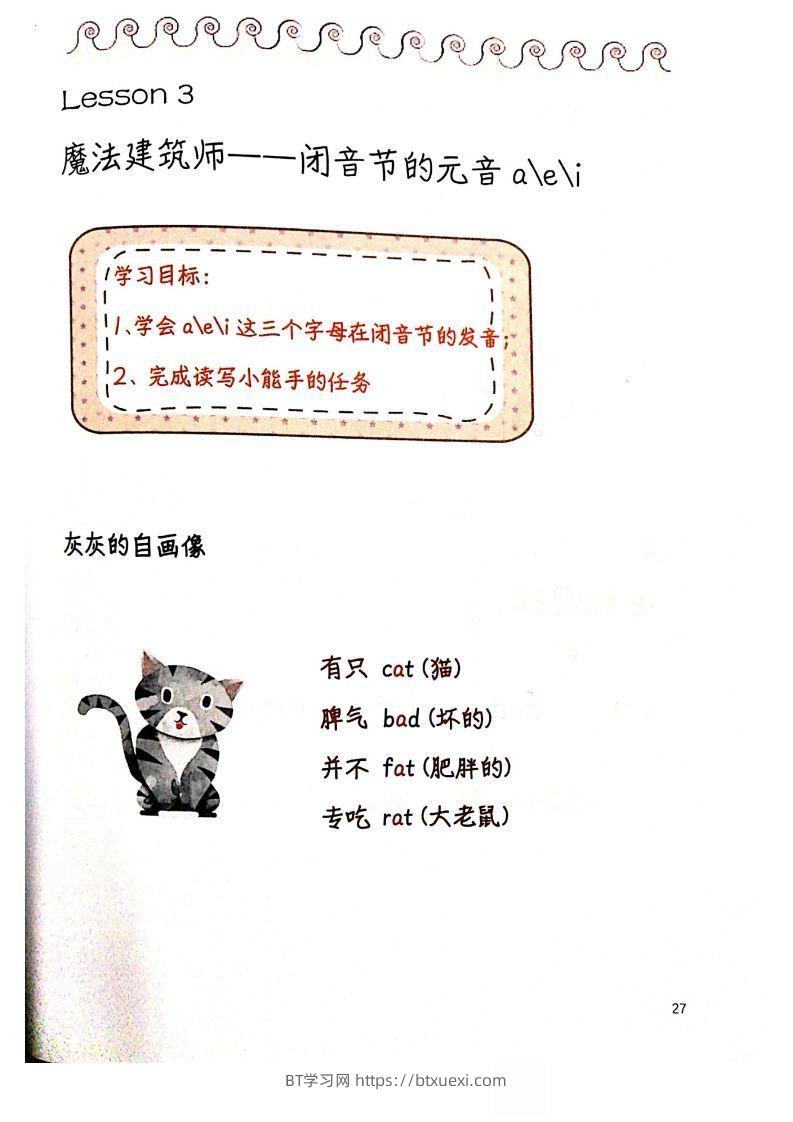 Lesson 3
魔法建筑师——闭音节的元音 a\e\i
学习目标：
1、学会 a\e\i 这三个字母在闭音节的发音；
2、完成读写小能手的任务
灰灰的自画像
有只 cat (猫)
脾气 bad (坏的)
并不 fat (肥胖的)
专吃 rat (大老鼠)
27
BT学习网 https://btxuexi.com